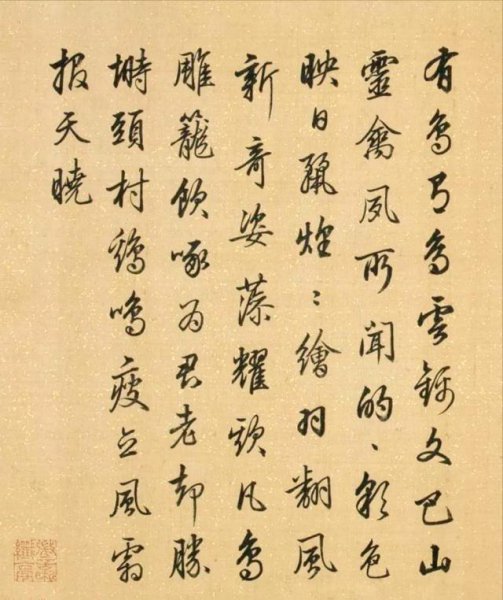 有鳥有鳥雲錦文巴山
靈禽夙所聞的、彩色
映日麗煌〻繪羽翻風
新奇姿藻耀凡鳥
雕籠飲啄為君老却勝
塒頭村鷄鳴疲立風霜
報天曉